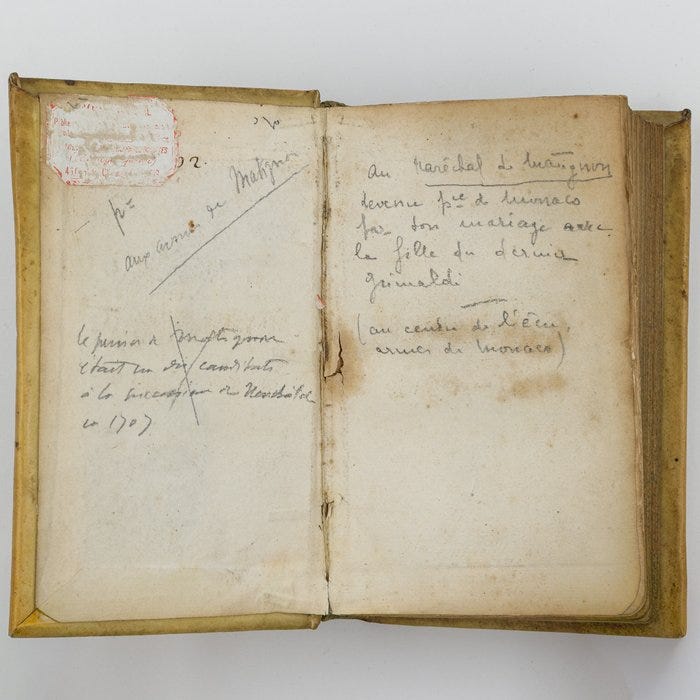 02.
pce
aux armes de Matignon
le prince de Matignon
était un des candidats
à la succession de Neuchâtel
en 1707
au maréchal de Matignon
devenu pce de Monaco
par son mariage avec
la fille du dernier
Grimaldi
(au centre de l'écu,
armes de Monaco)